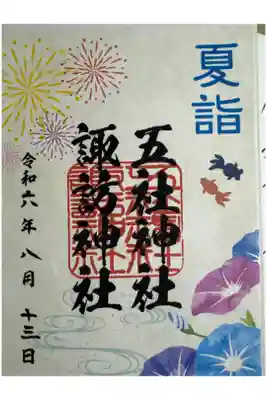 夏詣
五社神社
諏訪神社
令和六年八月十三日